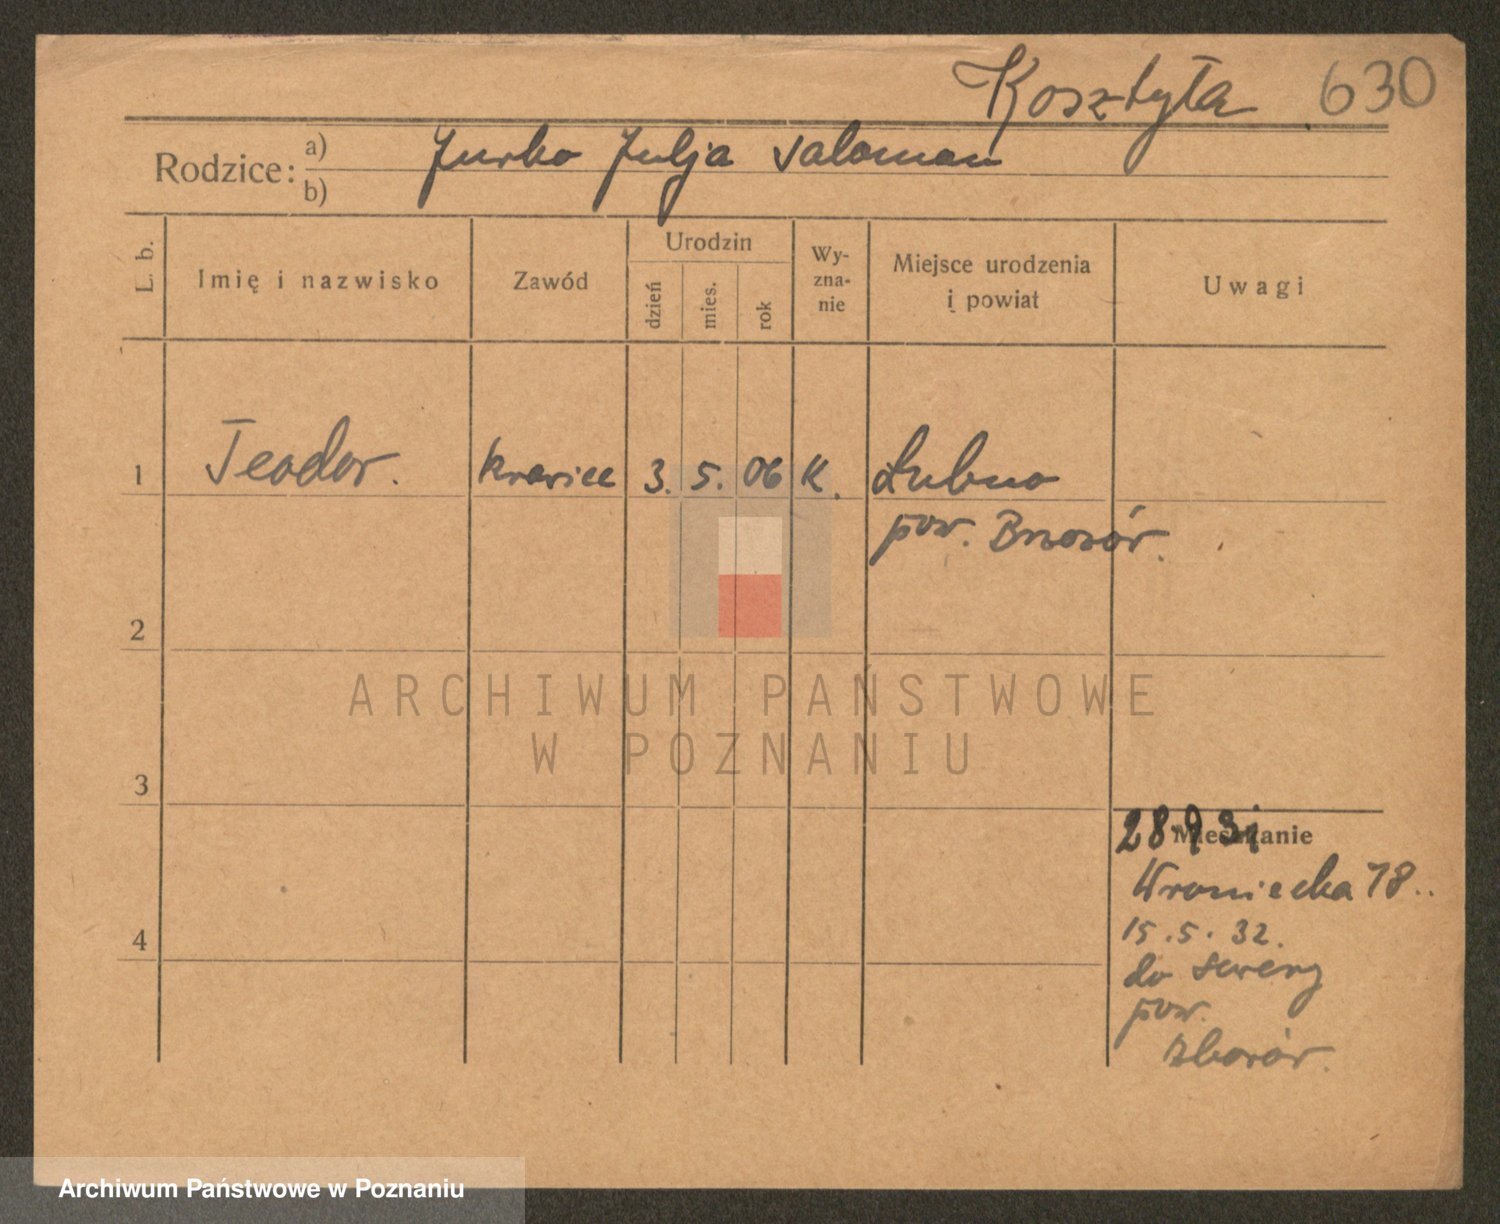 Kosztyła 630
Rodzice: a) Jurko Julja Salamon
b)
L. b.
Imię i nazwisko
Zawód
Urodzin
dzień
mies.
rok
Wy-
zna-
nie
Miejsce urodzenia
i powiat
Uwagi
1 Teodor. krawiec 3. 5. 06 K. Łubno
pow. Brzozów.
2
ARCHIWUM PAŃSTWOWE
W POZNANIU
3
28 9 31
Mieszkanie
Wroniecka 18..
4
15.5.32.
do
pow.
Zborów.
Archiwum Państwowe w Poznaniu